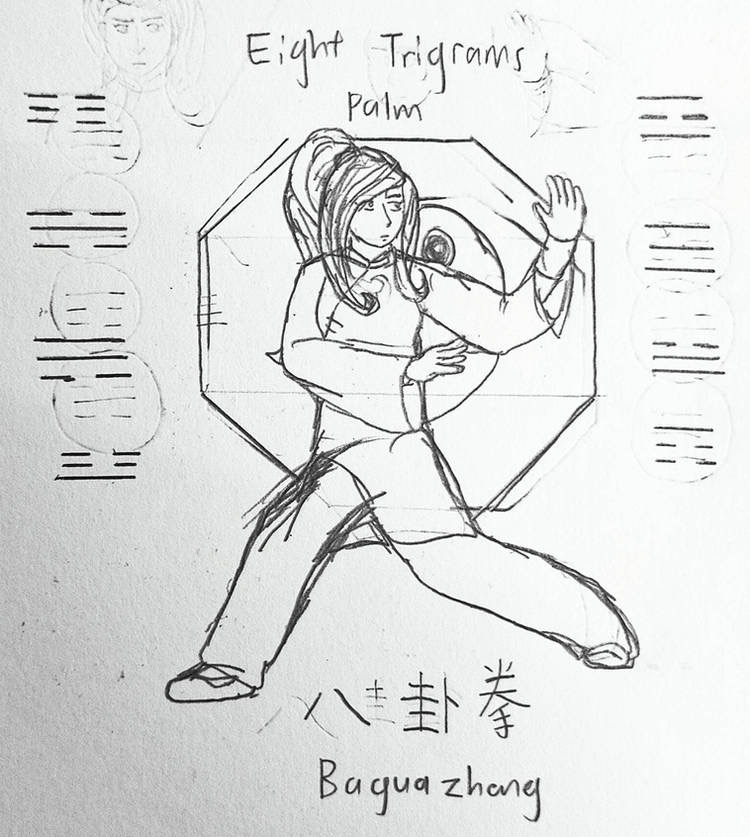 Eight Trigrams
Palm
八卦拳
Baguazhang